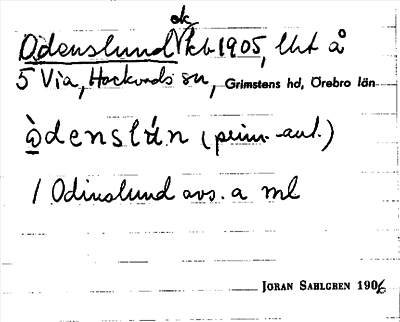 ek
Odenslund Vkb 1905, lht å
5 Via, Hackvads sn, Grimstens hd, Örebro län
òdenslún (prim. aut.)
1 Odinslund avs. a ml
JORAN SAHLGREN 1906